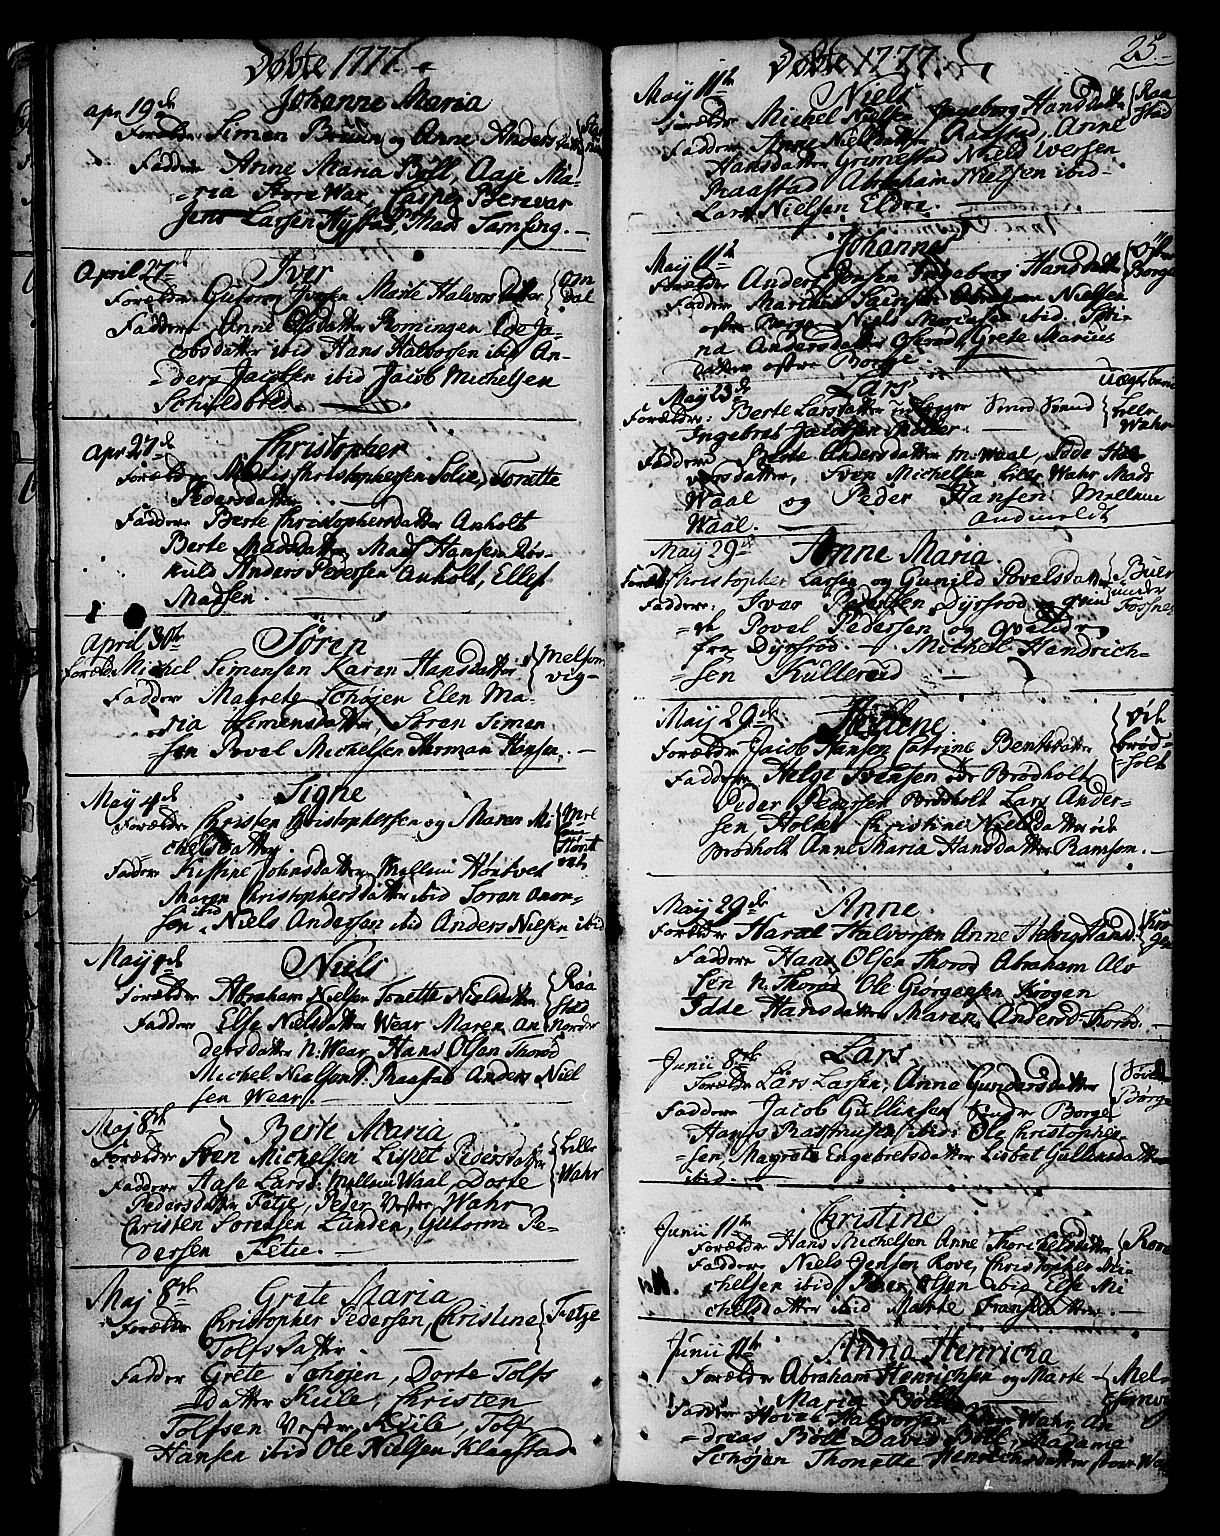 Døbte 1777.
apr 19de Johanne Maria
Forældr. Simen Bruun og Anne Anders
Fadder Anne Maria Böll, Aaje Ma-
-ria Store Wær, Casper
Jens Larsen Nystad, Mads Samsing.
April 27. Iver
Forældr. Guttorm Iversen Marte Halvors datter Om
dal
Faddere Anne Olsdatter Romingen Ja-
cobsdatter ibid Hans Halvorsen ibid An-
-ders Jacobsen ibid Jacob Michelsen
Schildbred.
Apr 27de Christopher
Forældr Christophersen Solie, Tonette
Pedersdatter
Faddere Berte Christophersdatter Anholt
Berte Madsdatter, Mads Hansen Ros-
kuld Anders Pedersen Anholt, Ellef
Madsen.
April 30te Søren
Foreld. Michel Simensen Karen Hansdatter Melsom
vig
Faddere Magrete Schøjen Elen Ma-
ria Simensdatter, Søren Simen
sen Povel Michelsen Herman Hansen.
May 4de Signe
Forældre Christen Christophersen og Maren Mi
chelsdatter.
Faddere Kirstine Johnsdatter Mellem Høntvet
Maren Christophersdatter ibid Søren Anor-
sen ibid Niels Andersen ibid Anders Nielsen ibid
May 8de Niels
Forældre Abraham Nielsen Tonette Nielsdatter Raa
Stad
Nordre
Fadder Else Nielsdatter Wear Maren An
dersdatter N: Wear, Hans Olsen Thorød
Michel Nielsen N. Raastad Anders Niel
sen Wear.
Maj 8de Berte Maria
Foreldre Sten Michelsen Lisbet Pedersdatter Lille
Wahr
Faddere Aase Lars: Mellum Waal, Dorte
Pedersdatter Fetje, Peder Vestre Wahr
Christen Sørensen Lunden, Guttorm Pe-
dersen Fetie.
Maj 8de Grete Maria
Forældr Christopher Pedersen Christine Fetje
Tolfsdatter.
Fadder Grete Schøjen, Dorte Tolfs
Datter Kule, Christen
Tolfsen Vestre Kiile, Tolf
Hansen ibid Ole Nielsen Klaastad
Døbte 1777.
25.
May 11te Niels
Forældr Michel Nielsen Ingeborg Hansdatter Raa
Stad
Faddere Anne Nielsdatter Raastad, Anne
Hansdatter Grimestad Niels Iversen
Raastad Abraham Nielsen ibid-
Lars Nielsen Eldre.
May 11te Johannes
Forældre Anders Jensen Ingeborg Hansdatter Østre
Borge
Faddere Marthe Abraham Nielsen
østre Borge Niels Moriassen ibid. Sti-
na Andersdatter Grete Marius
Datter østre Borge.
May 23de Lars Uægte barn
Forældr: Berte Larsdatter udlegger Smed Svend Lille
Wahr
Ingebret Jacobsen Møller.
Faddere Berte Andersdatter m: Waal, Sidse Hal
vorsdatter, Iver Michelsen Lille Wahr Mads
Waal og Peder Hansen Mellum
Waal. Andmeldt
May 29de Anne Maria
Foreldr. Christopher Larsen og Gunild Povelsdatter Buer
under
Fossnes
Faddere: Ivar Pedersen Dyrsrød og qvin
-de Povel Pedersen og qvinde
fra Dyrsrød. Michel Handrich-
sen Kullerød
May 29de Helene
Forældr Jacob Hansen Catrine Bentsdatter øde
brød
holt
Faddere Helge Svensen øde Brødholt
Peder Pedersen Brødholt Lars Ander-
sen Holtet Christine Nielsdatter øde
Brødholt Anne Maria Hansdatter Ramsem.
May 29de Anne
Forældr Haral Halvorsen Anne Helvig Hansd. Kro
gen
Faddere Hans Olsen Thorød Abraham Alv
sen N: Thorød Ole Giørgensen Krogen
Idde Hansdatter Maren Andersd Thorød.
Junii 8de Lars
Forældr Lars Larsen, Anne Gundersdatter Søndre
Borge
Faddere Jacob Gullivsen Søndre Borge
Hans Rasmusen ibid: Ole Christopher-
sen Magrete Engebretsdatter Lisbet Gullivsdatter
ibid.
Junii 11te Christine
Forældr Hans Michelsen Anne Thorchelsdatter Rove
Faddere Niels Jensen Rove, Christopher Mi-
chelsen ibid Peder Olsen ibid Else Mi
chelsdatter ibid Marte Fransdatter.
Junii 11te Anna Henricia
Forældr Abraham Henrichsen og Marte Mel
somvig
Maria Bøll
Faddere Hover Halvorsen Wahr, An
-dreas Bøll David Bøll, Madame
Schøjen Thonette Henrichsdatter store Wa